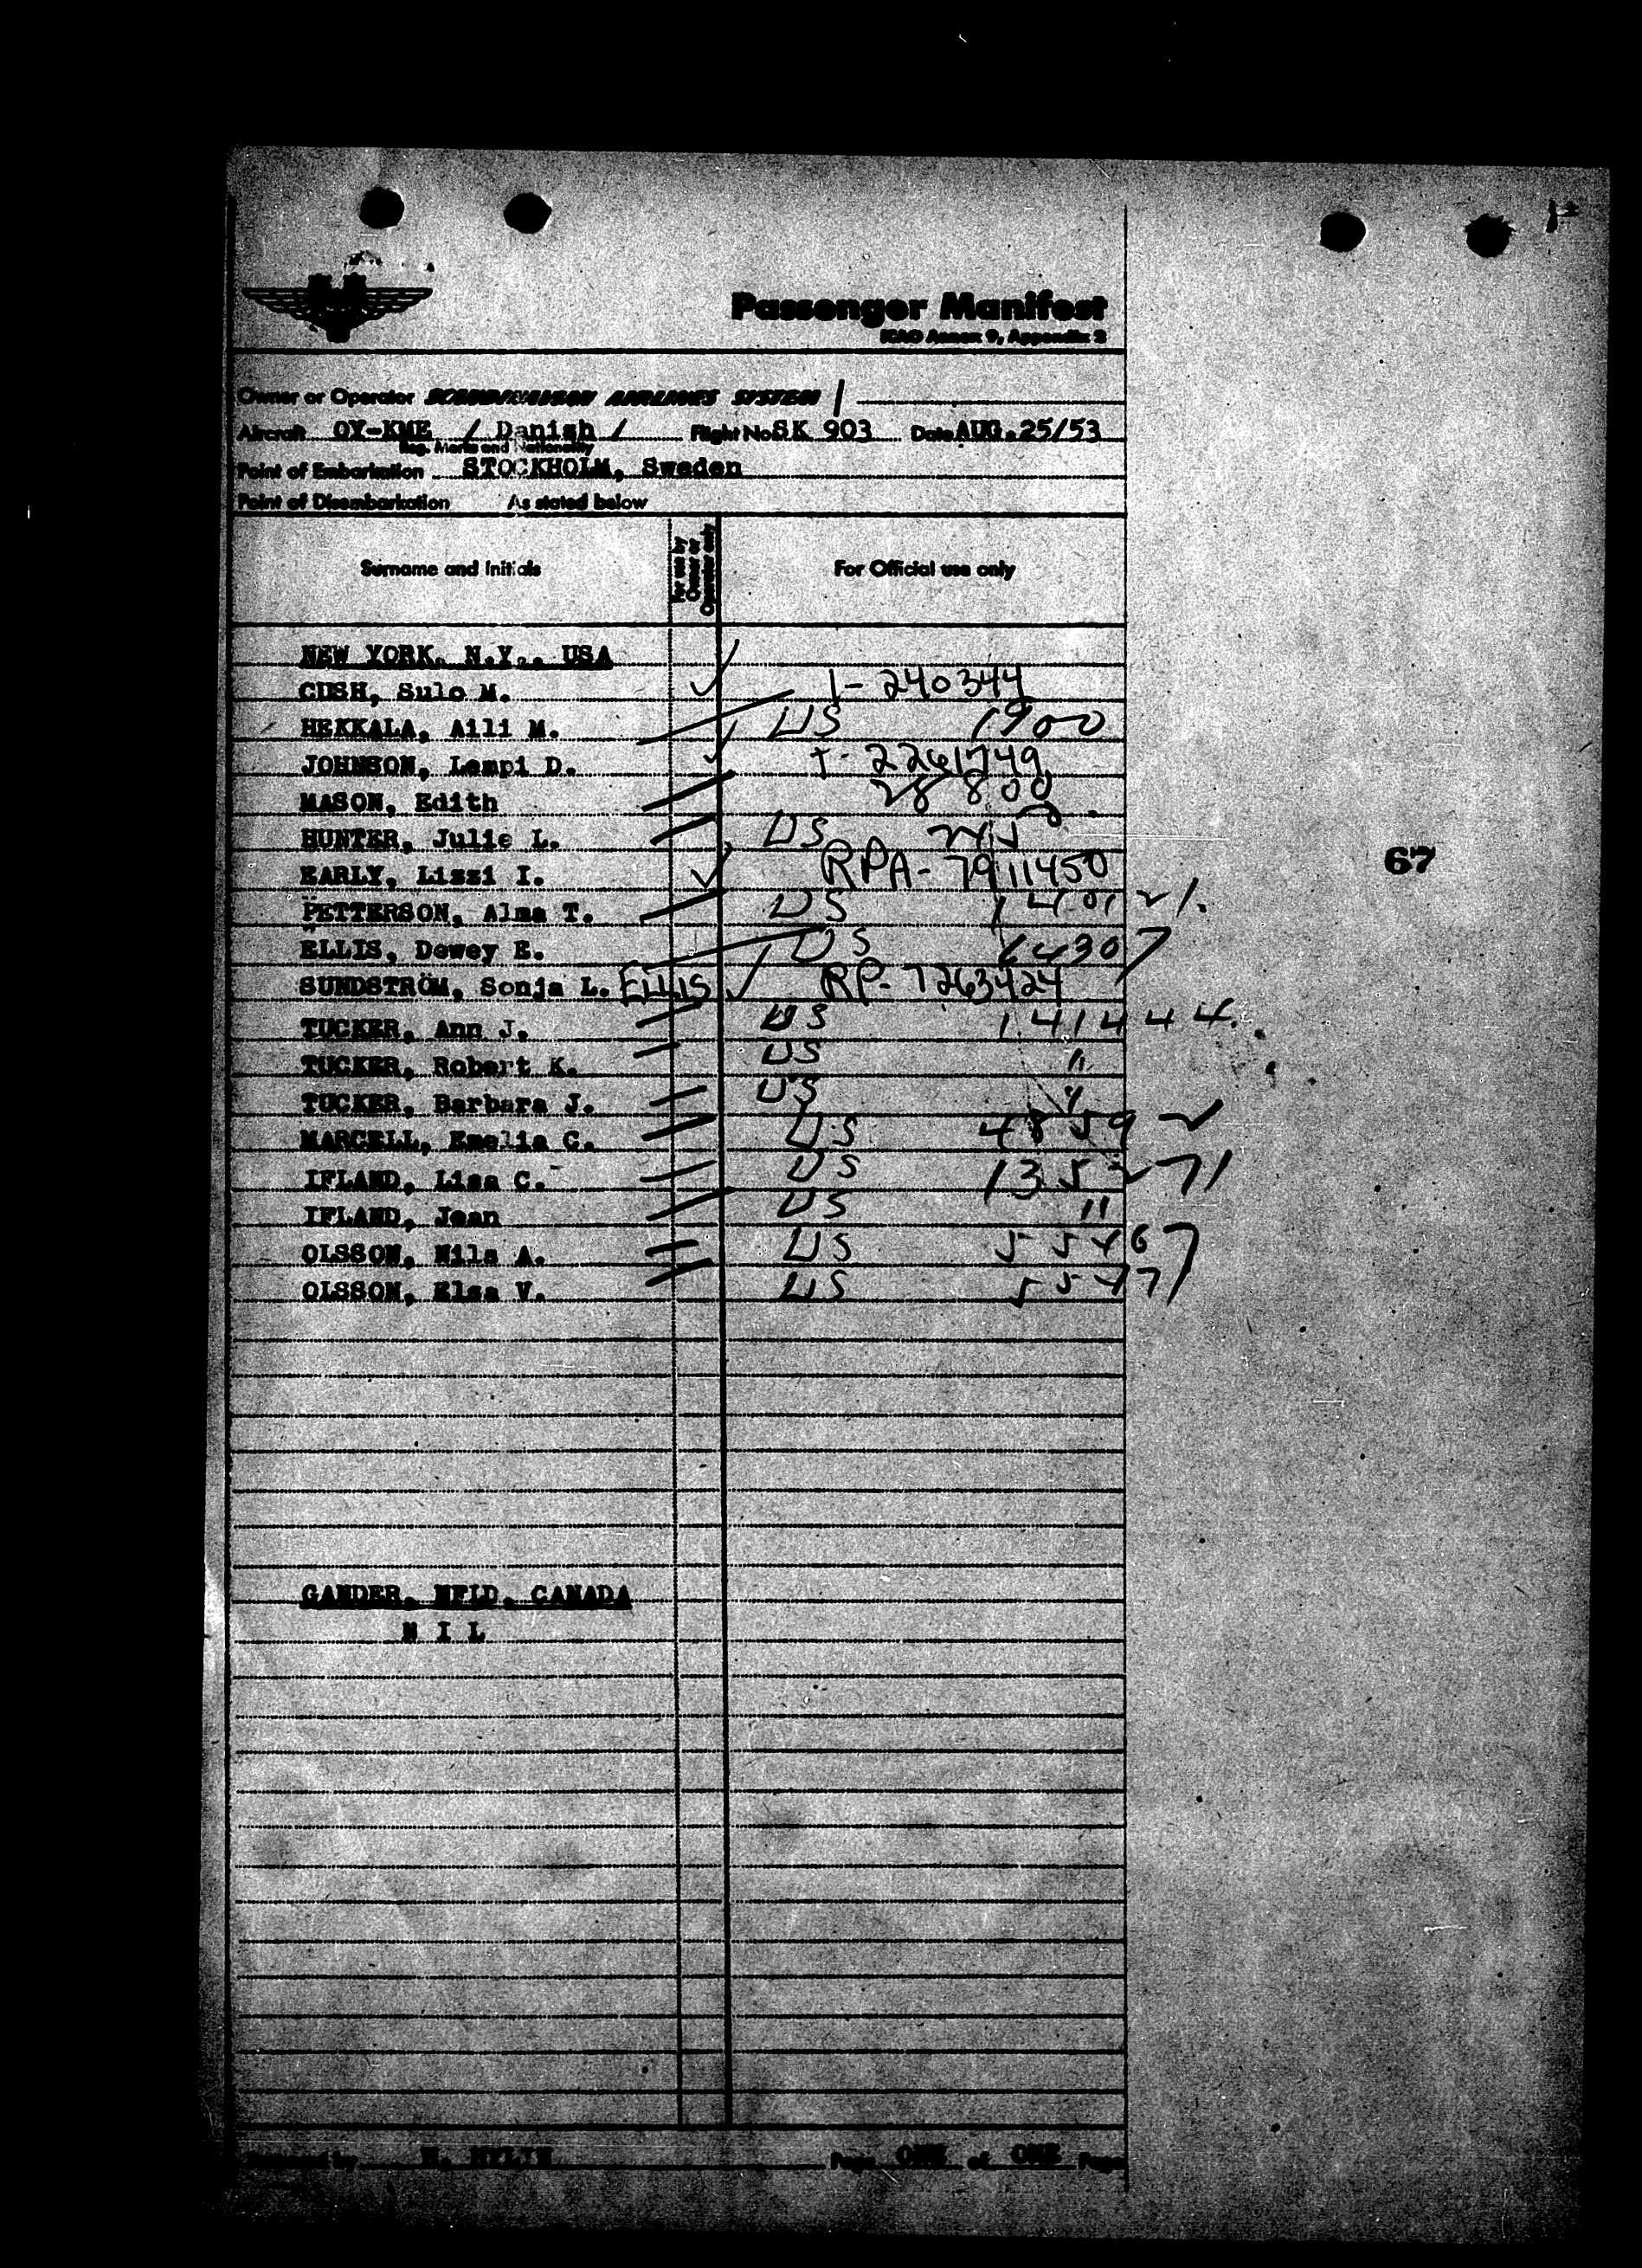 Passenger Manifest
ICAO Annex 9, Appendix 2
Owner or Operator SCANDINAVIAN AIRLINES SYSTEM /
Aircraft OY-KME / Danish / Flight No SK 903 Date AUG. 25/53
Reg. Marks and Nationality
Point of Embarkation STOCKHOLM, Sweden
Point of Disembarkation As stated below
Surname and Initials For use by Owner or Operator only For Official use only
NEW YORK, N.Y., USA
CUSH, Sulo M. 1-240344
HEKKALA, Aili M. US 1900
JOHNSON, Lempi D. T-2261749
MASON, Edith 28800
HUNTER, Julie L. US
EARLY, Lizzi I. RPA-7911450
PETTERSON, Alma T. US 140121.
ELLIS, Dewey E. US 14307
SUNDSTRÖM, Sonja L. ELLIS RP-7263424
TUCKER, Ann J. US 141444.
TUCKER, Robert K. US "
TUCKER, Barbara J. US "
MARCELL, Emelia C. US 4859
IFLAND, Lisa C. US 135271
IFLAND, Jean US "
OLSSON, Nils A. US 55467
OLSSON, Elsa V. US 5547
67
GANDER, NFLD, CANADA
N I L
Prepared by H. Page ONE of ONE Page